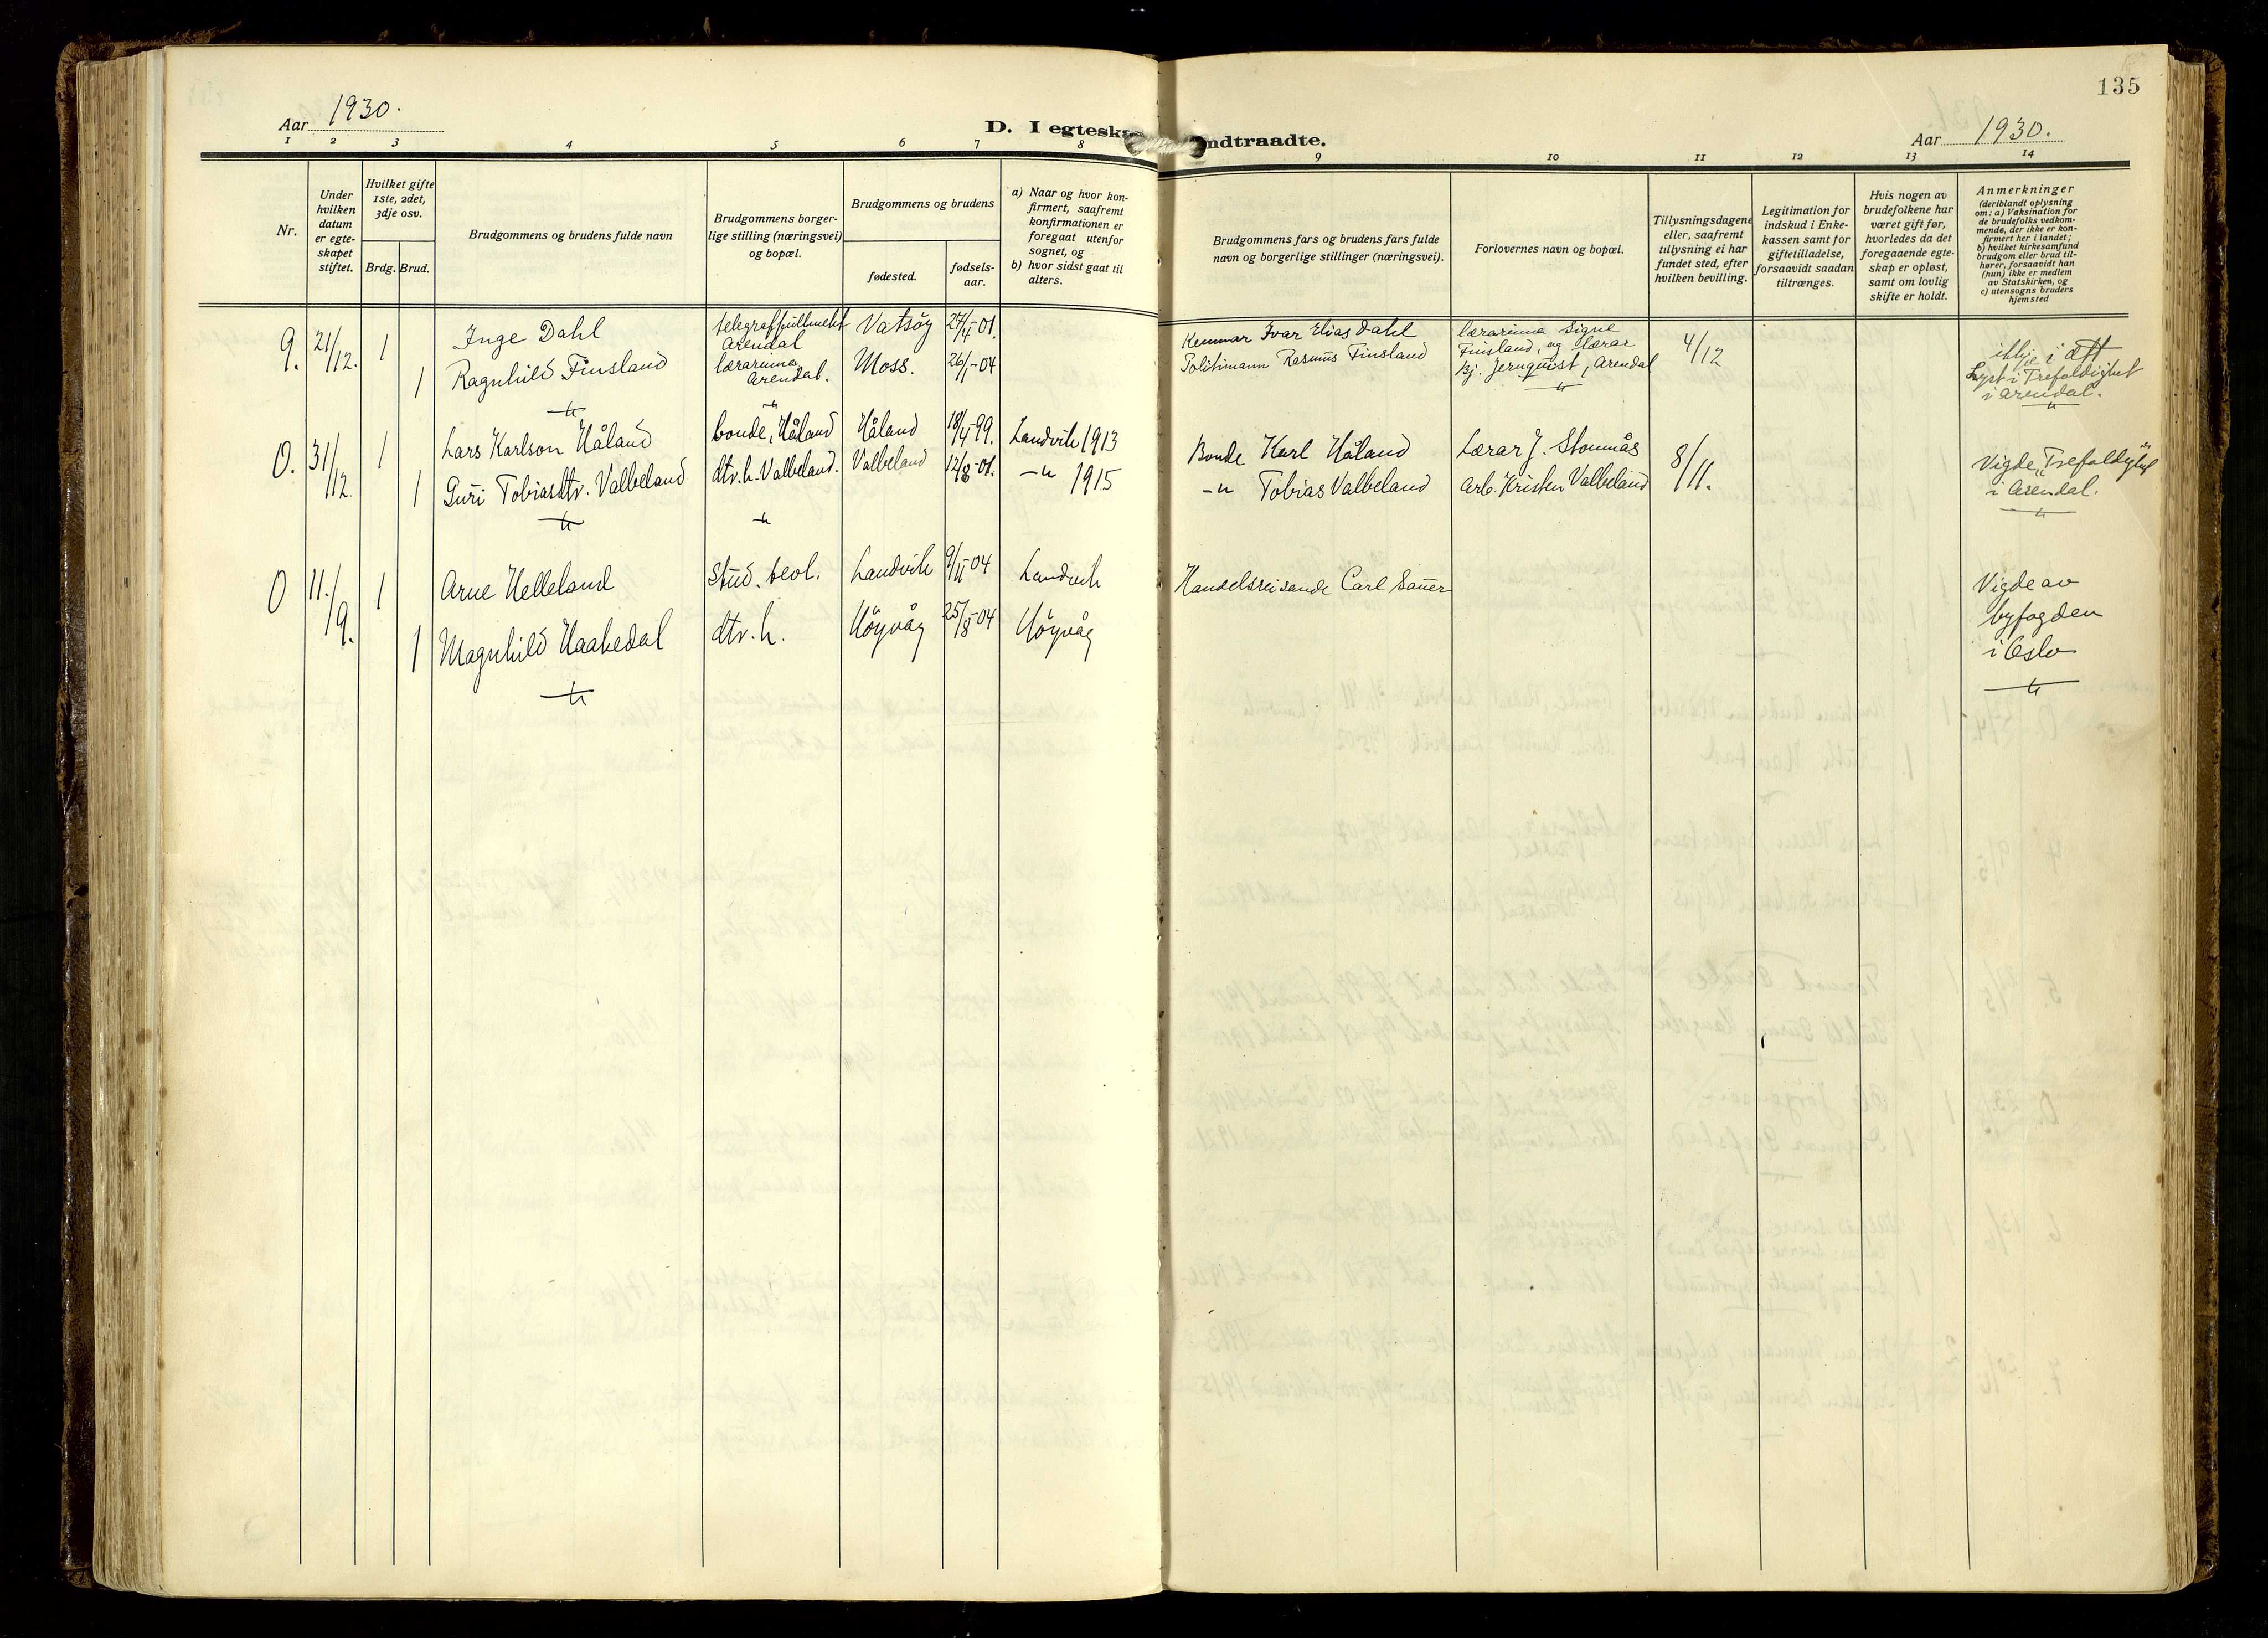 135
Aar 1930.
D. I egteska ndtraadte.
Aar 1930.
1 2 3 4 5 6 7 8 9 10 11 12 13 14
Nr.
Under
hvilken
datum
er egte-
skapet
stiftet.
Hvilket gifte
1ste, 2det,
3dje osv.
Brdg. Brud.
Brudgommens og brudens fulde navn
Brudgommens borger-
lige stilling (næringsvei)
og bopæl.
Brudgommens og brudens
fødested.
fødsels-
aar.
a) Naar og hvor kon-
firmert, saafremt
konfirmationen er
foregaat utenfor
sognet, og
b) hvor sidst gaat til
alters.
Brudgommens fars og brudens fars fulde
navn og borgerlige stillinger (næringsvei).
Forlovernes navn og bopæl.
Tillysningsdagene
eller, saafremt
tillysning ei har
fundet sted, efter
hvilken bevilling.
Legitimation for
indskud i Enke-
kassen samt for
giftetilladelse,
forsaavidt saadan
tiltrænges.
Hvis nogen av
brudefolkene har
været gift før,
hvorledes da det
foregaaende egte-
skap er opløst,
samt om lovlig
skifte er holdt.
Anmerkninger
(deriblandt oplysning
om: a) Vaksination for
de brudefolks vedkom-
mende, der ikke er kon-
firmert her i landet;
b) hvilket kirkesamfund
brudgom eller brud til-
hører, forsaavidt han
(hun) ikke er medlem
av Statskirken, og
c) utensogns bruders
hjemsted
9. 21/12. 1 Inge Dahl
Arendal
Vatsöy 27/4-01.
Kemnar Ivar Elias Dahl
lærarinna Signe
Finsland, og lærar
Bj. Jernquist, Arendal
4/12
1 Ragnhild Finsland
lærarinna
Arendal.
Moss. 26/1-04
Politimann Rasmus Finsland
Lyst i Trefoldighet
i Arendal.
O. 31/12. 1 Lars Karlson Håland
bonde, Håland
Håland 18/4-99.
Landvik 1913
Bonde Karl Håland
Lærar J. Stomnås
8/11.
1 Guri Tobiasdtr. Valbeland
dtr. h. Valbeland.
Valbeland 12/8-01.
-"- 1915
-"- Tobias Valbeland
Arb. Kristen Valbeland
Vigde i Trefoldighet
i Arendal.
O 11./9. 1 Arne Helleland
Stud. teol.
Landvik 9/11-04
Landvik
Handelsreisande Carl Sauer
1 Magnhild Haakedal
dtr. h.
Höyvåg 25/8-04
Höyvåg
Vigde av
byfogden
i Oslo